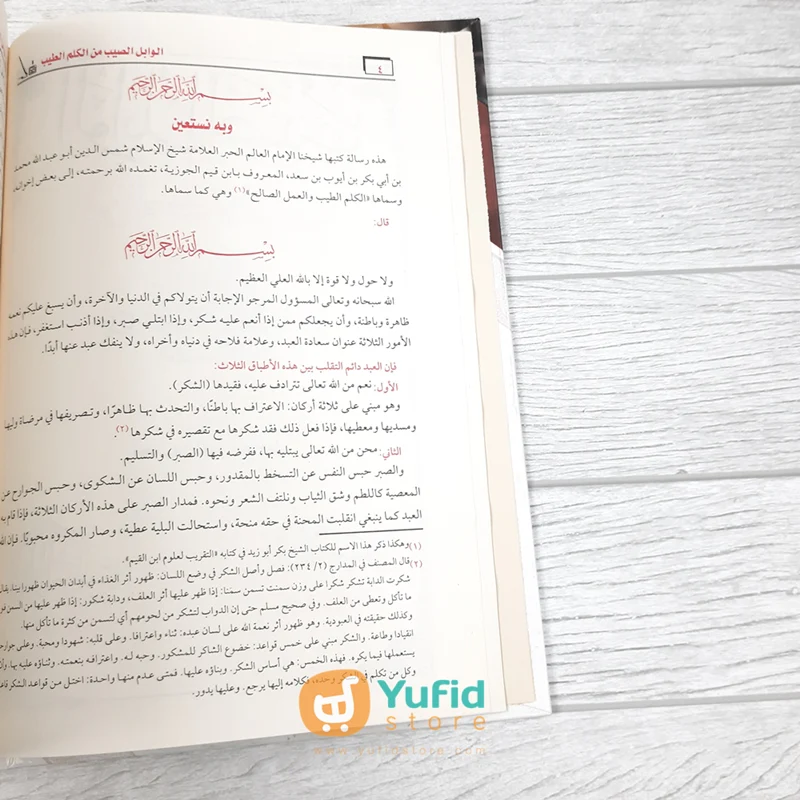 الوابل الصيب من الكلم الطيب
٤
بسم الله الرحمن الرحيم
وبه نستعين
هذه رسالة كتبها شيخنا الإمام العالم الحبر العلامة شيخ الإسلام شمس الدين أبو عبد الله محمد
بن أبي بكر بن أيوب بن سعد، المعروف بابن قيم الجوزية، تغمده الله برحمته، إلى بعض إخوانه
وسماها «الكلم الطيب والعمل الصالح»(١) وهي كما سماها.
قال:
بسم الله الرحمن الرحيم
ولا حول ولا قوة إلا بالله العلي العظيم.
الله سبحانه وتعالى المسؤول المرجو الإجابة أن يتولاكم في الدنيا والآخرة، وأن يسبغ عليكم نعمه
ظاهرة وباطنة، وأن يجعلكم ممن إذا أنعم عليه شكر، وإذا ابتلي صبر، وإذا أذنب استغفر، فإن هذه
الأمور الثلاثة عنوان سعادة العبد، وعلامة فلاحه في دنياه وأخراه، ولا ينفك عبد عنها أبدًا.
فإن العبد دائم التقلب بين هذه الأطباق الثلاث:
الأول: نعم من الله تعالى تترادف عليه، فقيدها (الشكر).
وهو مبني على ثلاثة أركان: الاعتراف بها باطنًا، والتحدث بها ظاهرًا، وتصريفها في مرضاة وليها
ومسديها ومعطيها، فإذا فعل ذلك فقد شكرها مع تقصيره في شكرها (٢).
الثاني: محن من الله تعالى يبتليه بها، ففرضه فيها (الصبر) والتسليم.
والصبر حبس النفس عن التسخط بالمقدور، وحبس اللسان عن الشكوى، وحبس الجوارح عن
المعصية كاللطم وشق الثياب ونلتف الشعر ونحوه. فمدار الصبر على هذه الأركان الثلاثة، فإذا قام به
العبد كما ينبغي انقلبت المحنة في حقه منحة، واستحالت البلية عطية، وصار المكروه محبوبًا. فإن الله
(١) وهكذا ذكر هذا الاسم للكتاب الشيخ بكر أبو زيد في كتابه «التقريب لعلوم ابن القيم».
(٢) قال المصنف في المدارج (٢/ ٢٣٤): فصل وأصل الشكر في وضع اللسان: ظهور أثر الغذاء في أبدان الحيوان ظهورا بينا. يقال
شكرت الدابة تشكر شكرا على وزن سمنت تسمن سمنا: إذا ظهر عليها أثر العلف، ودابة شكور: إذا ظهر عليها من السمن فوق
ما تأكل وتعطى من العلف. وفي صحيح مسلم حتى إن الدواب لتشكر من لحومهم أي لتسمن من كثرة ما تأكل منها.
وكذلك حقيقته في العبودية. وهو ظهور أثر نعمة الله على لسان عبده: ثناء واعترافا. وعلى قلبه: شهودا ومحبة. وعلى جوارحه
انقيادا وطاعة. والشكر مبني على خمس قواعد: خضوع الشاكر للمشكور. وحبه له. واعترافه بنعمته. وثناؤه عليه بها. وأن
يستعملها فيما يكره. فهذه الخمس: هي أساس الشكر. وبناؤه عليها. فمتى عدم منها واحدة: اختل من قواعد الشكر
وكل من تكلم في الشكر وحده، فكلامه إليها يرجع. وعليها يدور.
Yufid
store
www.yufidstore.com